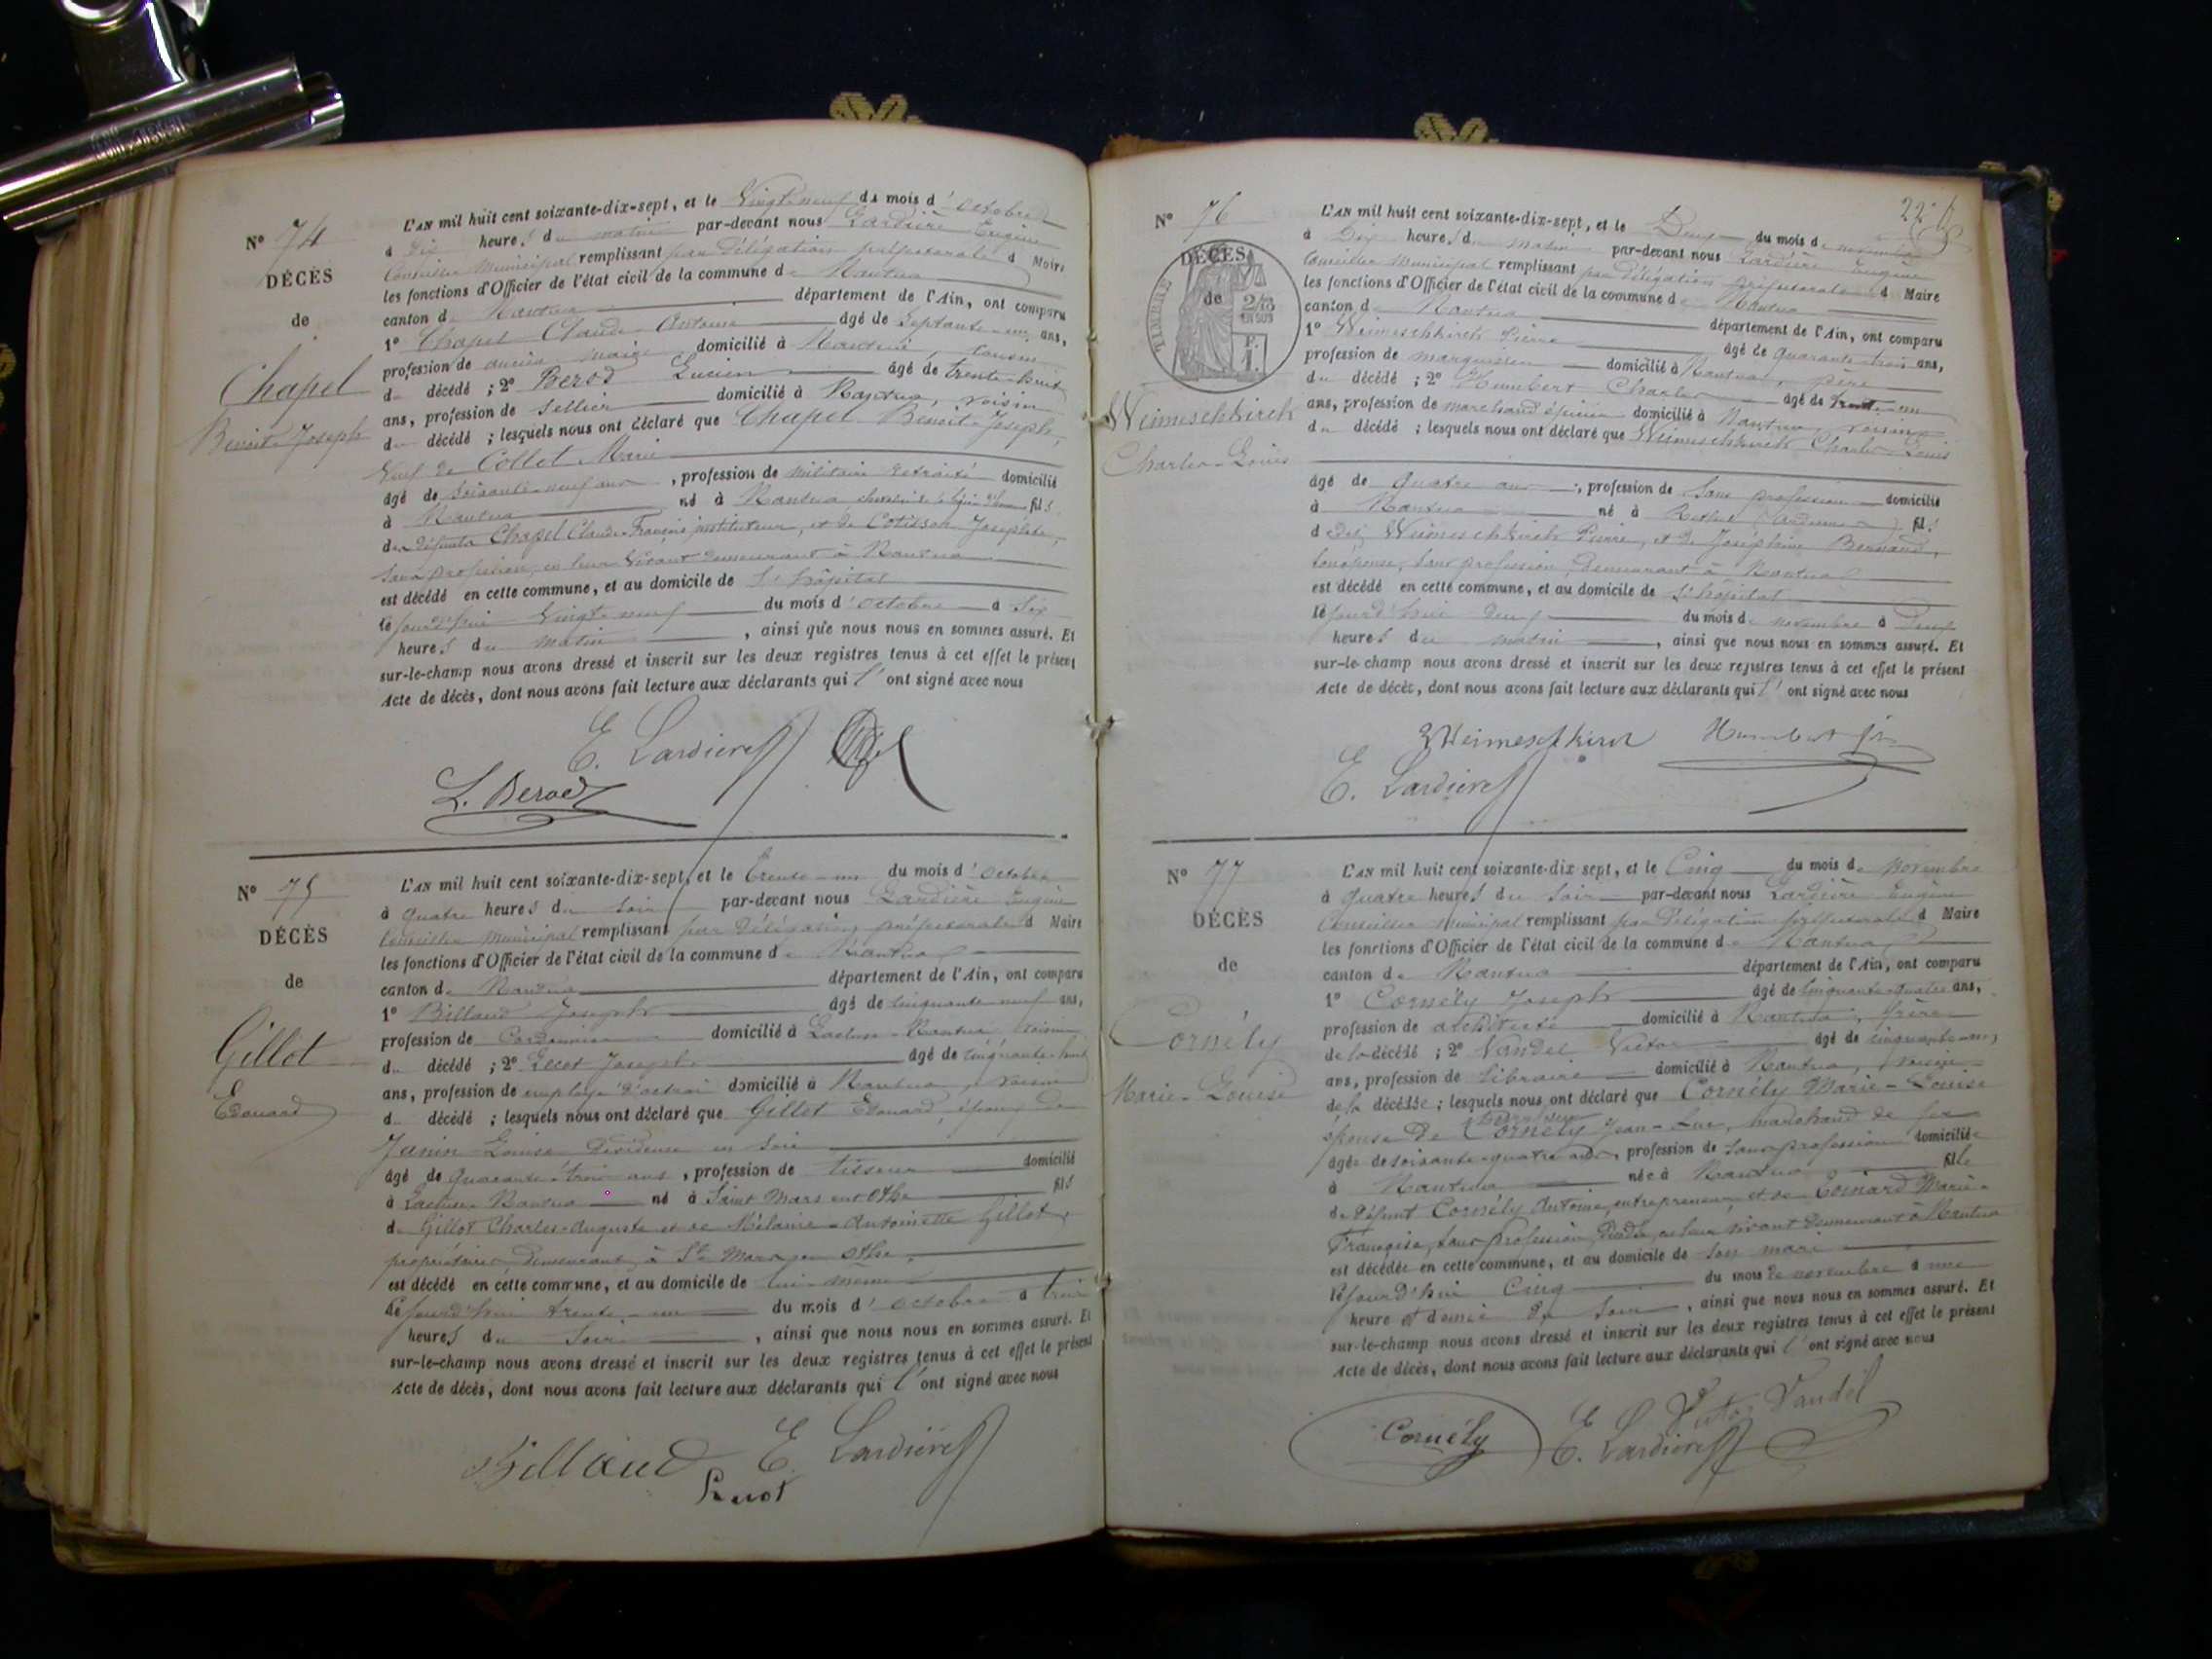 N° 74
DÉCÈS
de
Chapel
Benoit-Joseph
L'AN mil huit cent soixante-dix-sept, et le Vingt-neuf du mois d'octobre
à dix heures du matin par-devant nous Lardière Eugène
Conseiller Municipal remplissant par Délégation préfectorale d Maire
les fonctions d'Officier de l'état civil de la commune de Nantua
canton de Nantua département de l'Ain, ont comparu
1° Chapel Claude Antoine âgé de Septante-un ans,
profession de ancien maire domicilié à Nantua, cousin
du décédé ; 2° Berod Lucien âgé de trente-huit
ans, profession de Sellier domicilié à Nantua, voisin
du décédé ; lesquels nous ont déclaré que Chapel Benoit-Joseph,
Veuf de Collet Marie
âgé de soixante-neuf ans, profession de militaire retraité domicilié
à Nantua né à Nantua chevalier de la légion d'honneur fils
des défunts Chapel Claude-François instituteur, et de Josephte,
sans profession, en leur vivant demeurant à Nantua
est décédé en cette commune, et au domicile de l'hôpital
le jourd'hui vingt-neuf du mois d'octobre à Six
heures du matin, ainsi que nous nous en sommes assuré. Et
sur-le-champ nous avons dressé et inscrit sur les deux registres tenus à cet effet le présent
Acte de décès, dont nous avons fait lecture aux déclarants qui l'ont signé avec nous
E. Lardière
L. Berod
N° 75
DÉCÈS
de
Gillot
Edouard
L'AN mil huit cent soixante-dix-sept, et le trente-un du mois d'octobre
à quatre heures du soir par-devant nous Lardière Eugène
Conseiller Municipal remplissant par Délégation préfectorale d Maire
les fonctions d'Officier de l'état civil de la commune de Nantua
canton de Nantua département de l'Ain, ont comparu
1° Billaud Joseph âgé de cinquante-neuf ans,
profession de Cordonnier domicilié à Lacluse-Nantua voisin
du décédé ; 2° Lecot Joseph âgé de cinquante-huit
ans, profession de employé d'octroi domicilié à Nantua, voisin
du décédé ; lesquels nous ont déclaré que Gillot Edouard, époux de
Janin Louise Dévideuse en soie
âgé de quarante-trois ans, profession de tisseur domicilié
à Lacluse-Nantua né à Saint Mars en Othe fils
de Gillot Charles-Auguste et de Mélanie-Antoinette Gillot,
propriétaires demeurant à St Mars en Othe
est décédé en cette commune, et au domicile de lui-même
le jourd'hui trente-un du mois d'octobre à trois
heures du Soir, ainsi que nous nous en sommes assuré. Et
sur-le-champ nous avons dressé et inscrit sur les deux registres tenus à cet effet le présent
Acte de décès, dont nous avons fait lecture aux déclarants qui l'ont signé avec nous
Billaud E. Lardière
22
N° 76
DÉCÈS
de
TIMBRE
2/10
EN SUS
P.
1.
Weimeschkirch
Charles-Louis
L'AN mil huit cent soixante-dix-sept, et le Deux du mois de novembre
à Dix heures du matin par-devant nous Lardière Eugène
Conseiller Municipal remplissant par Délégation préfectorale d Maire
les fonctions d'Officier de l'état civil de la commune de Nantua
canton de Nantua département de l'Ain, ont comparu
1° Weimeschkirch Pierre âgé de quarante-trois ans,
profession de domicilié à Nantua, père
du décédé ; 2° Humbert Charles âgé de
ans, profession de marchand épicier domicilié à Nantua, voisin
du décédé ; lesquels nous ont déclaré que Weimeschkirch Charles-Louis
âgé de quatre ans, profession de Sans profession domicilié
à Nantua né à Rethel (Ardennes) fils
de Weimeschkirch Pierre, et de Joséphine Bernard,
son épouse, sans profession, demeurant à Nantua
est décédé en cette commune, et au domicile de l'hôpital
le jourd'hui deux du mois de novembre à Deux
heures du matin, ainsi que nous nous en sommes assuré. Et
sur-le-champ nous avons dressé et inscrit sur les deux registres tenus à cet effet le présent
Acte de décès, dont nous avons fait lecture aux déclarants qui l'ont signé avec nous
Weimeschkirch Humbert
E. Lardière
N° 77
DÉCÈS
de
Cornély
Marie-Louise
L'AN mil huit cent soixante-dix sept, et le Cinq du mois de novembre
à quatre heures du soir par-devant nous Lardière Eugène
Conseiller Municipal remplissant par Délégation préfectorale d Maire
les fonctions d'Officier de l'état civil de la commune de Nantua
canton de Nantua département de l'Ain, ont comparu
1° Cornély Joseph âgé de cinquante-quatre ans,
profession de architecte domicilié à Nantua, frère
de la décédé ; 2° Vandel Victor âgé de cinquante-un
ans, profession de libraire domicilié à Nantua, voisin
de la décédée ; lesquels nous ont déclaré que Cornély Marie-Louise
épouse de Cornély Jean-Luc, marchand de fer
âgée de soixante-quatre ans, profession de sans profession domiciliée
à Nantua née à Nantua fille
de défunt Cornély Antoine, entrepreneur, et de Marie-
Françoise, sans profession, en leur vivant demeurant à Nantua
est décédée en cette commune, et au domicile de son mari
le jourd'hui Cinq du mois de novembre à une
heure et demie du Soir, ainsi que nous nous en sommes assuré. Et
sur-le-champ nous avons dressé et inscrit sur les deux registres tenus à cet effet le présent
Acte de décès, dont nous avons fait lecture aux déclarants qui l'ont signé avec nous
Cornély Victor Vandel
E. Lardière